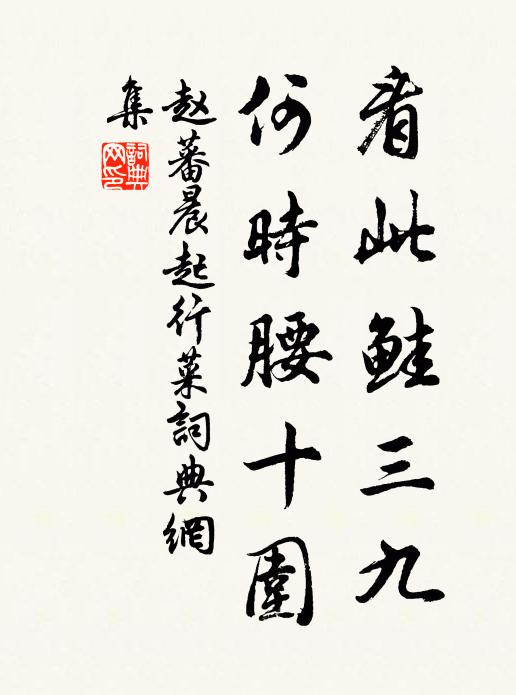 看此鲑三九
何時腰十圍
赵蕃晨起行菜詞典網
集
詞典网印